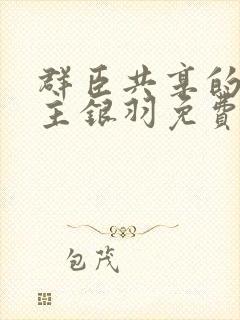 群臣共享的
主银羽免費
包茂